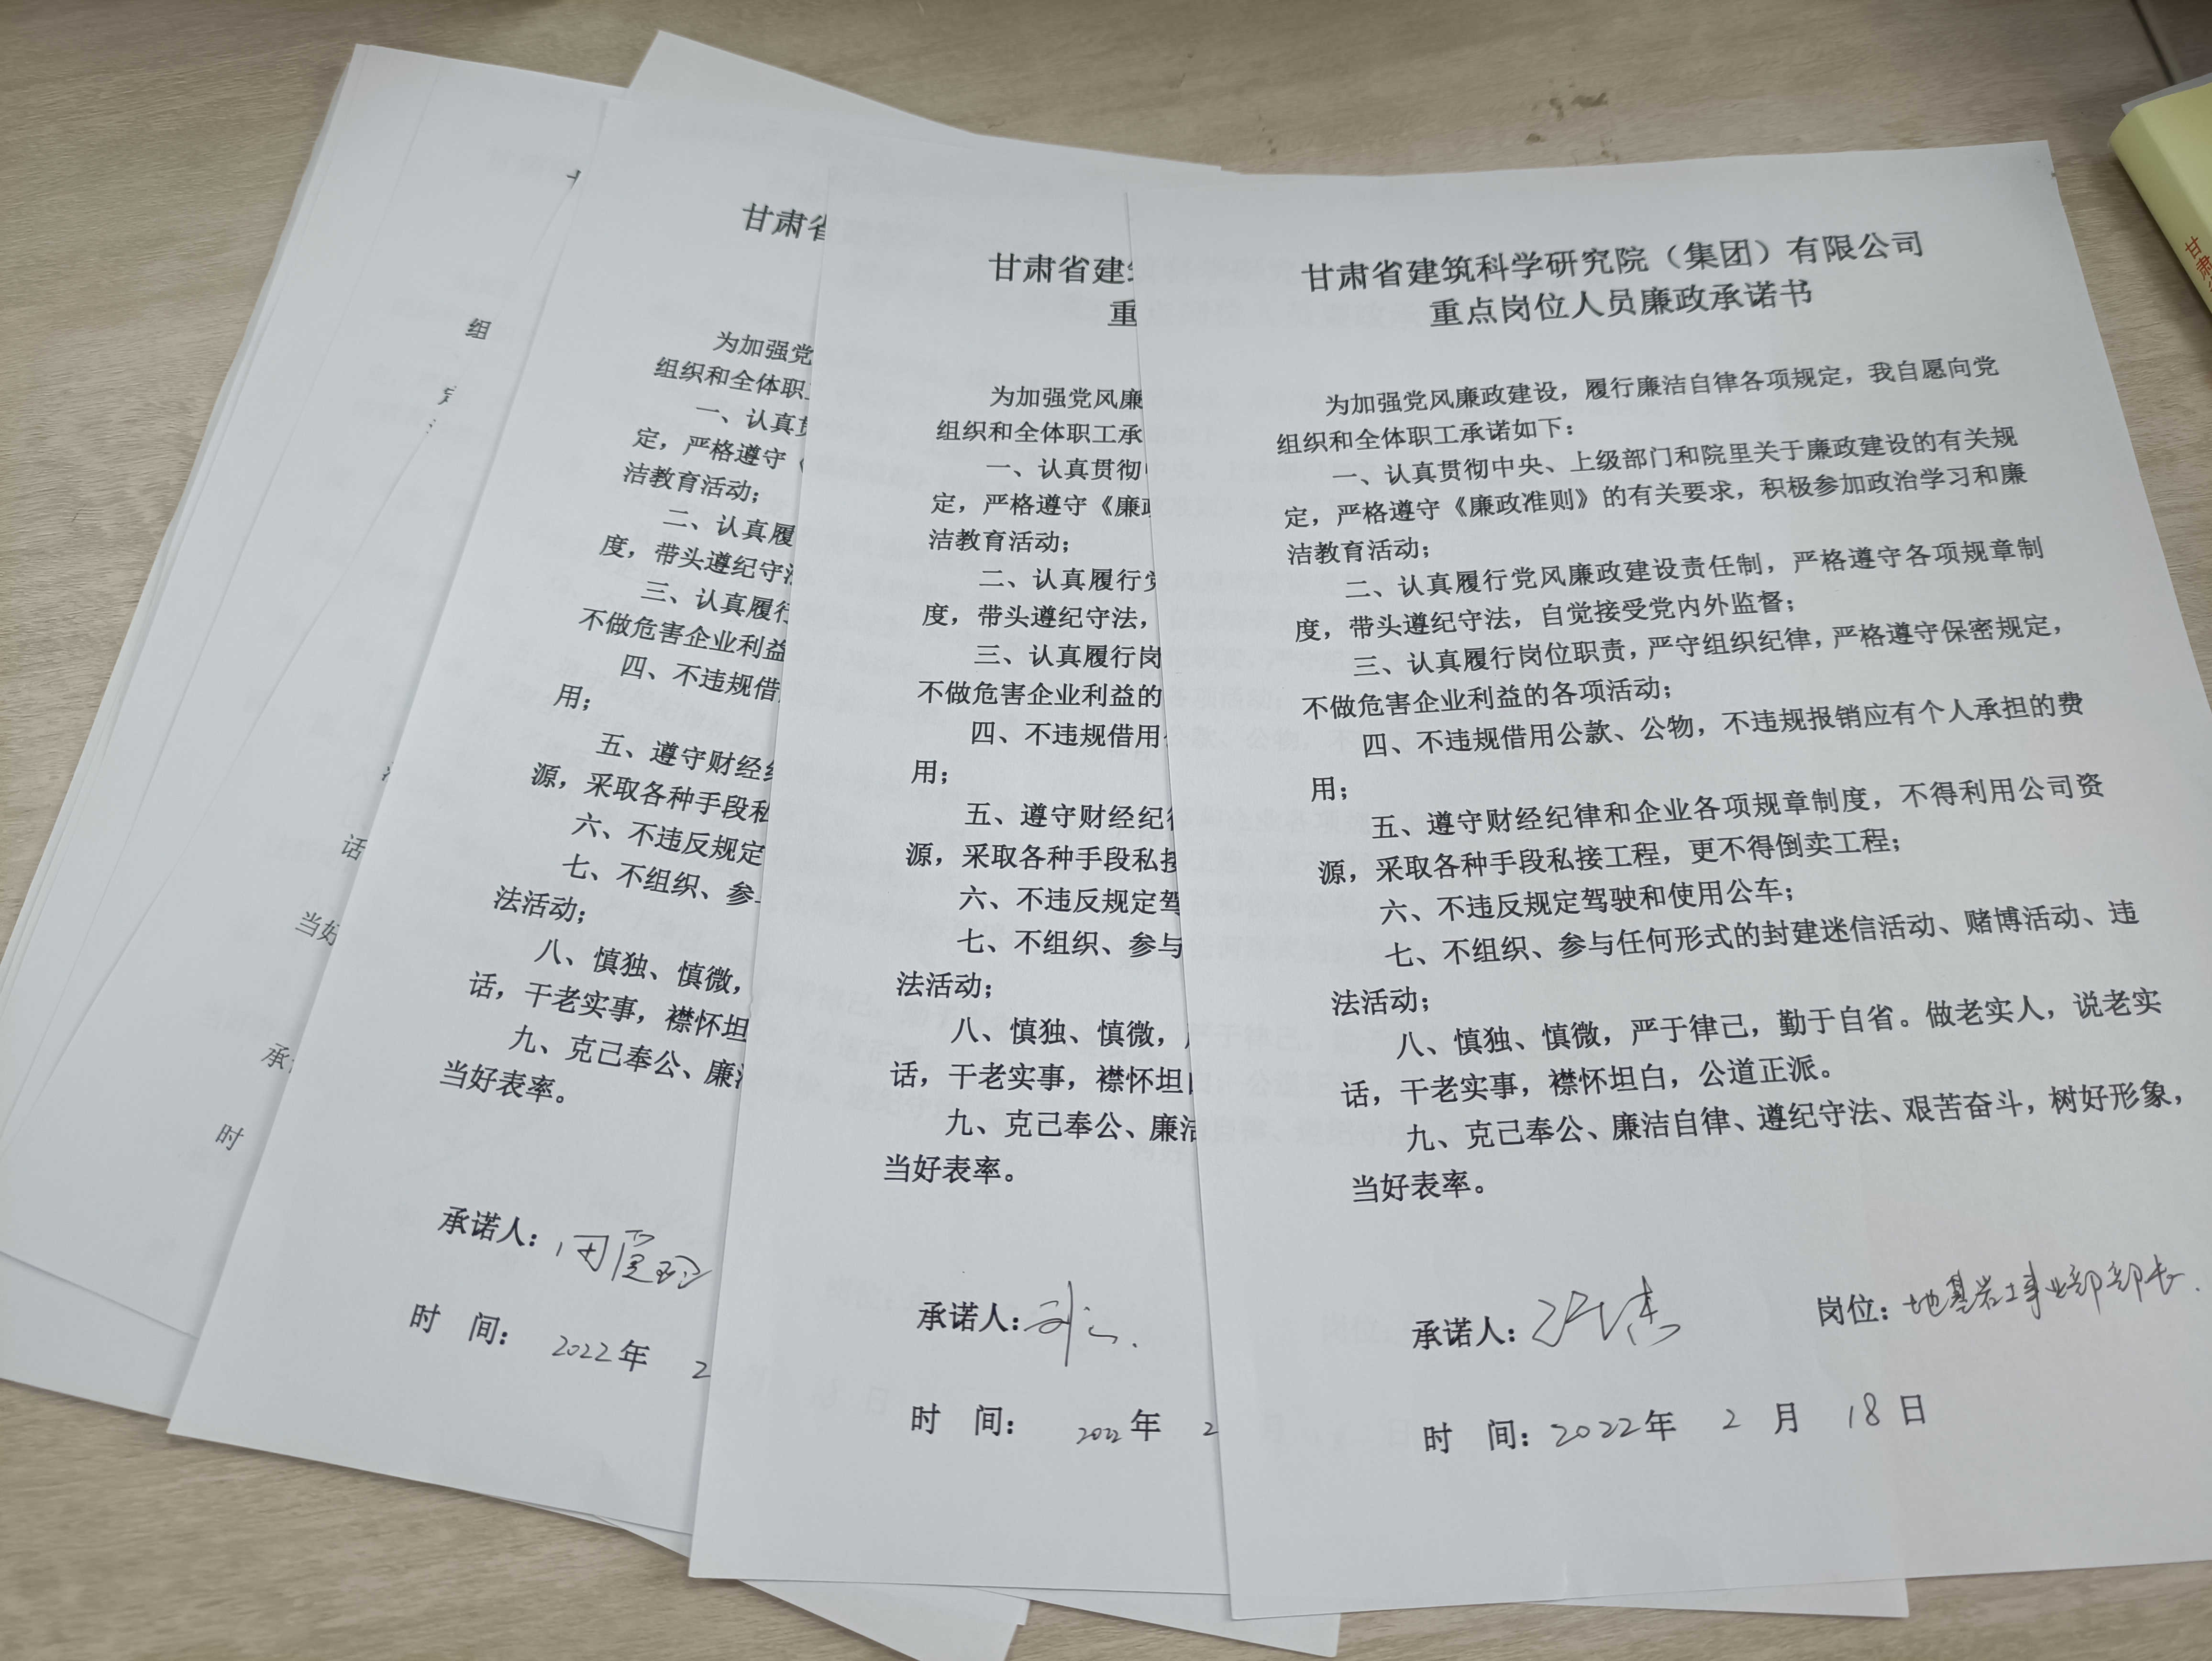 甘肃省建筑科学研究院（集团）有限公司
重点岗位人员廉政承诺书
为加强党风廉政建设，履行廉洁自律各项规定，我自愿向党
组织和全体职工承诺如下：
一、认真贯彻中央、上级部门和院里关于廉政建设的有关规
定，严格遵守《廉政准则》的有关要求，积极参加政治学习和廉
洁教育活动；
二、认真履行党风廉政建设责任制，严格遵守各项规章制
度，带头遵纪守法，自觉接受党内外监督；
三、认真履行岗位职责，严守组织纪律，严格遵守保密规定，
不做危害企业利益的各项活动；
四、不违规借用公款、公物，不违规报销应有个人承担的费
用；
五、遵守财经纪律和企业各项规章制度，不得利用公司资
源，采取各种手段私接工程，更不得倒卖工程；
六、不违反规定驾驶和使用公车；
七、不组织、参与任何形式的封建迷信活动、赌博活动、违
法活动；
八、慎独、慎微，严于律己，勤于自省。做老实人，说老实
话，干老实事，襟怀坦白，公道正派。
九、克己奉公、廉洁自律、遵纪守法、艰苦奋斗，树好形象，
当好表率。
承诺人： 岗位：地基岩土事业部部长.
时 间：2022年 2 月 18日
甘肃省建
重
为加强党风廉
组织和全体职工承
一、认真贯彻
定，严格遵守《廉政
洁教育活动；
二、认真履行党
度，带头遵纪守法，
三、认真履行岗
不做危害企业利益的
四、不违规借用
用；
五、遵守财经纪
源，采取各种手段私接
六、不违反规定驾
七、不组织、参与
法活动；
八、慎独、慎微，
话，干老实事，襟怀坦
九、克己奉公、廉洁
当好表率。
承诺人：
时 间： 2022年 2
甘肃省
为加强党
组织和全体职
一、认真
定，严格遵守
洁教育活动；
二、认真履
度，带头遵纪守
三、认真履行
不做危害企业利益
四、不违规借
用；
五、遵守财经
源，采取各种手段私
六、不违反规定
七、不组织、参
法活动；
八、慎独、慎微，
话，干老实事，襟怀坦
九、克己奉公、廉
当好表率。
承诺人：
时 间： 2022年 2
组
话
当好
承
时
甘肃